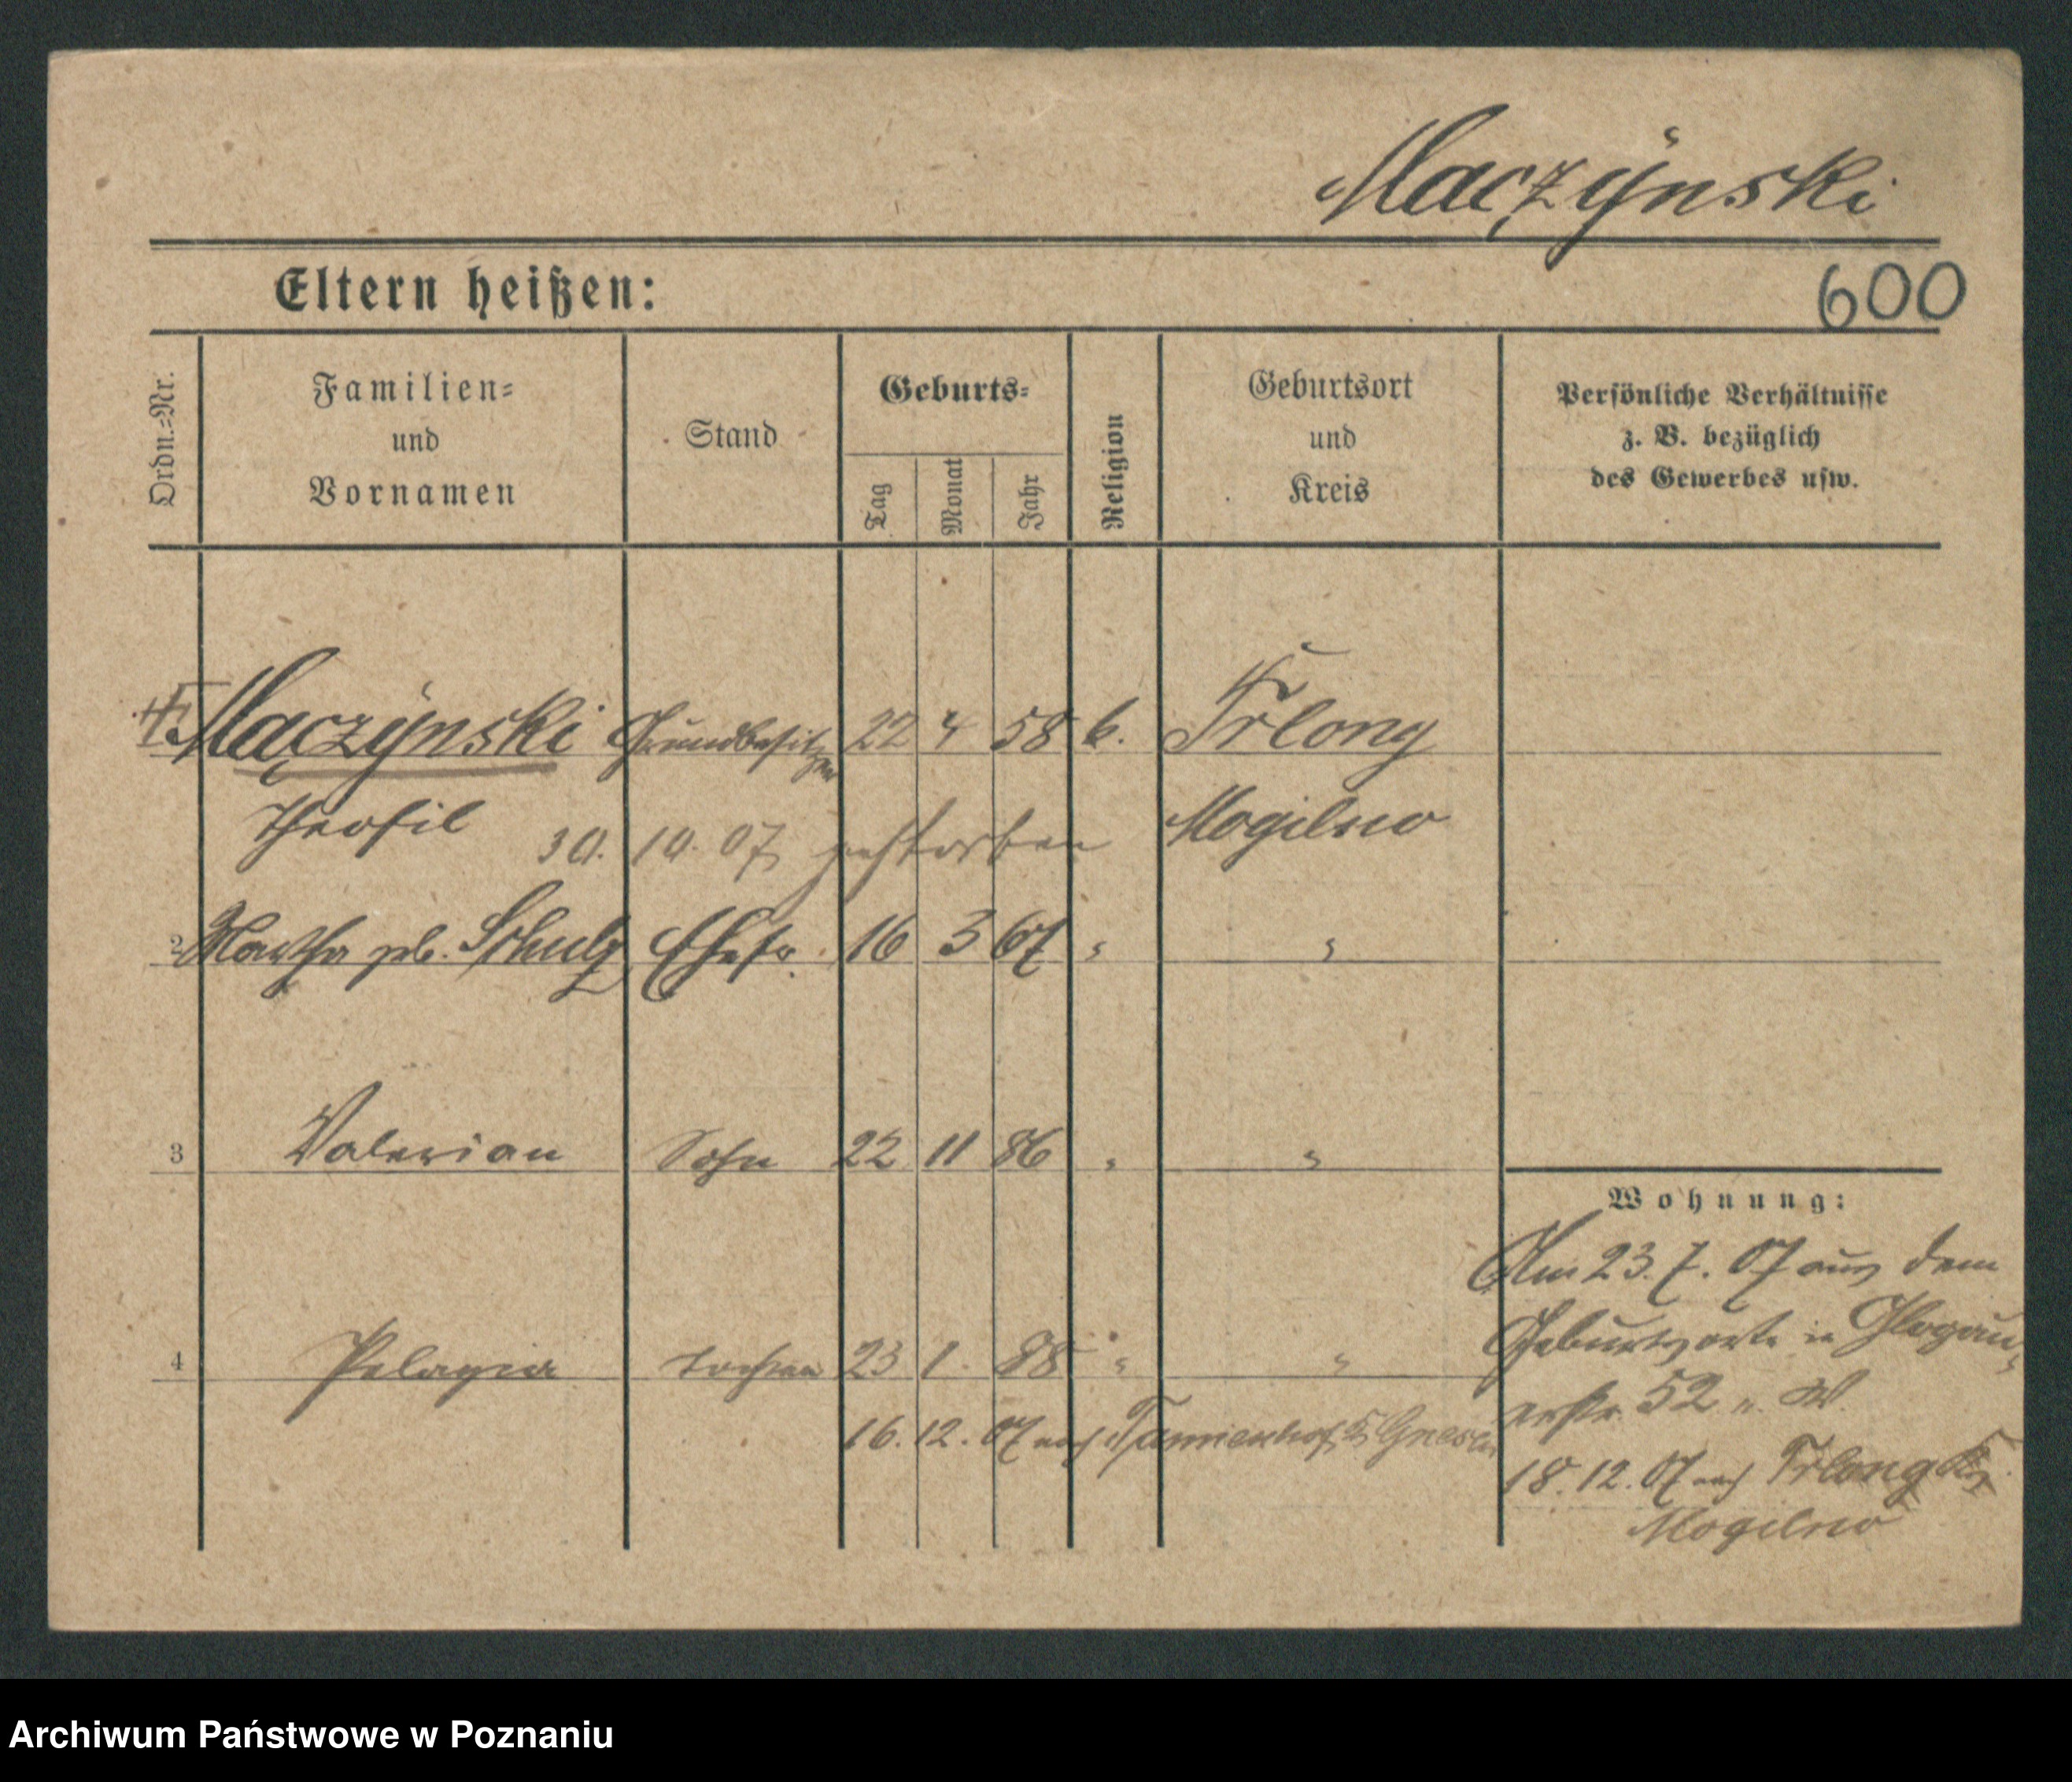 Mączynski
Eltern heißen:
600
Ordn.-Nr.
Familien-
und
Vornamen
Stand
Geburts-
Tag
Monat
Jahr
Religion
Geburtsort
und
Kreis
Persönliche Verhältnisse
z. B. bezüglich
des Gewerbes usw.
Mączynski Grundbesitzer 22 4 58 k. Trlong
Theofil Mogilno
30. 10. 07 gestorben
2 Martha geb. Schulz Ehefr. 16 3 67 " "
3 Valerian Sohn 22 11 86 " "
4 Pelagia Tochter 23 1. 88 " "
16. 12. 07 nach Gnesen
Wohnung:
Am 23. 7. 07 aus dem
Geburtsorte in Glogau-
erstr. 52 u. W.
18. 12. 07 nach Trlong Kr.
Mogilno
Archiwum Państwowe w Poznaniu